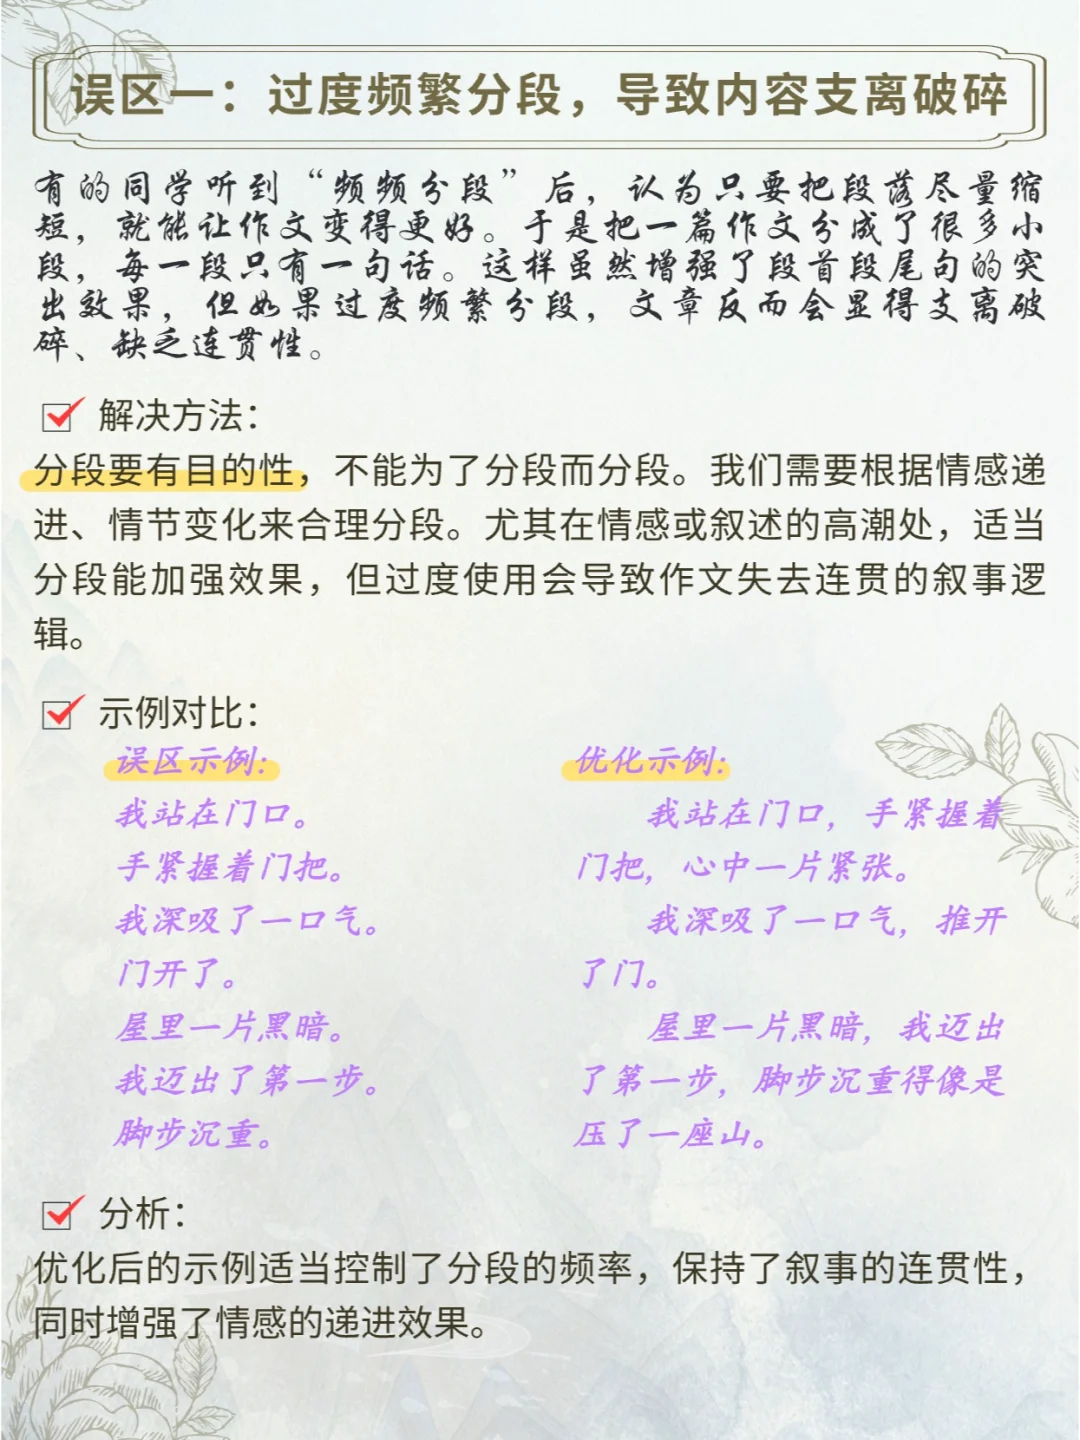 误区一：过度频繁分段，导致内容支离破碎
有的同学听到“频频分段”后，认为只要把段落尽量缩
短，就能让作文变得更好。于是把一篇作文分成了很多小
段，每一段只有一句话。这样虽然增强了段首段尾句的突
出效果，但如果过度频繁分段，文章反而会显得支离破
碎、缺乏连贯性。
解决方法：
分段要有目的性，不能为了分段而分段。我们需要根据情感递
进、情节变化来合理分段。尤其在情感或叙述的高潮处，适当
分段能加强效果，但过度使用会导致作文失去连贯的叙事逻
辑。
示例对比：
误区示例:
我站在门口。
手紧握着门把。
我深吸了一口气。
门开了。
屋里一片黑暗。
我迈出了第一步。
脚步沉重。
优化示例:
我站在门口，手紧握着
门把，心中一片紧张。
我深吸了一口气，推开
了门。
屋里一片黑暗，我迈出
了第一步，脚步沉重得像是
压了一座山。
分析：
优化后的示例适当控制了分段的频率，保持了叙事的连贯性，
同时增强了情感的递进效果。